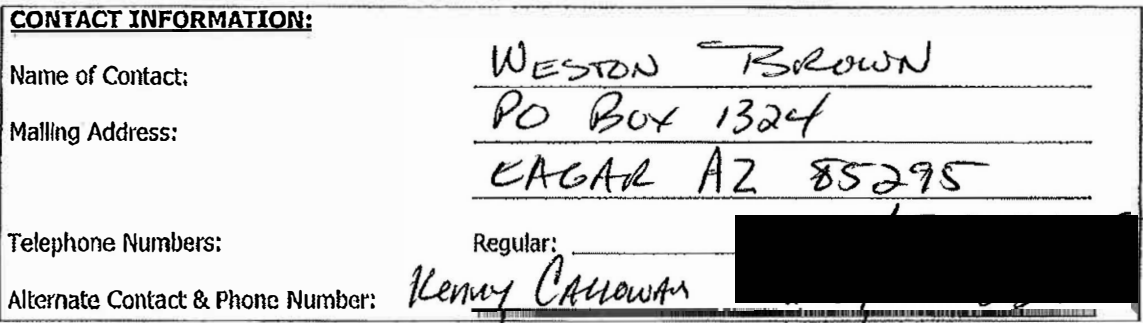 CONTACT INFORMATION:
Name of Contact: WESTON BROWN
Mailing Address: PO BOX 1324
EAGAR AZ 85295
Telephone Numbers: Regular:
Alternate Contact & Phone Number: Kenny CALLOWAY